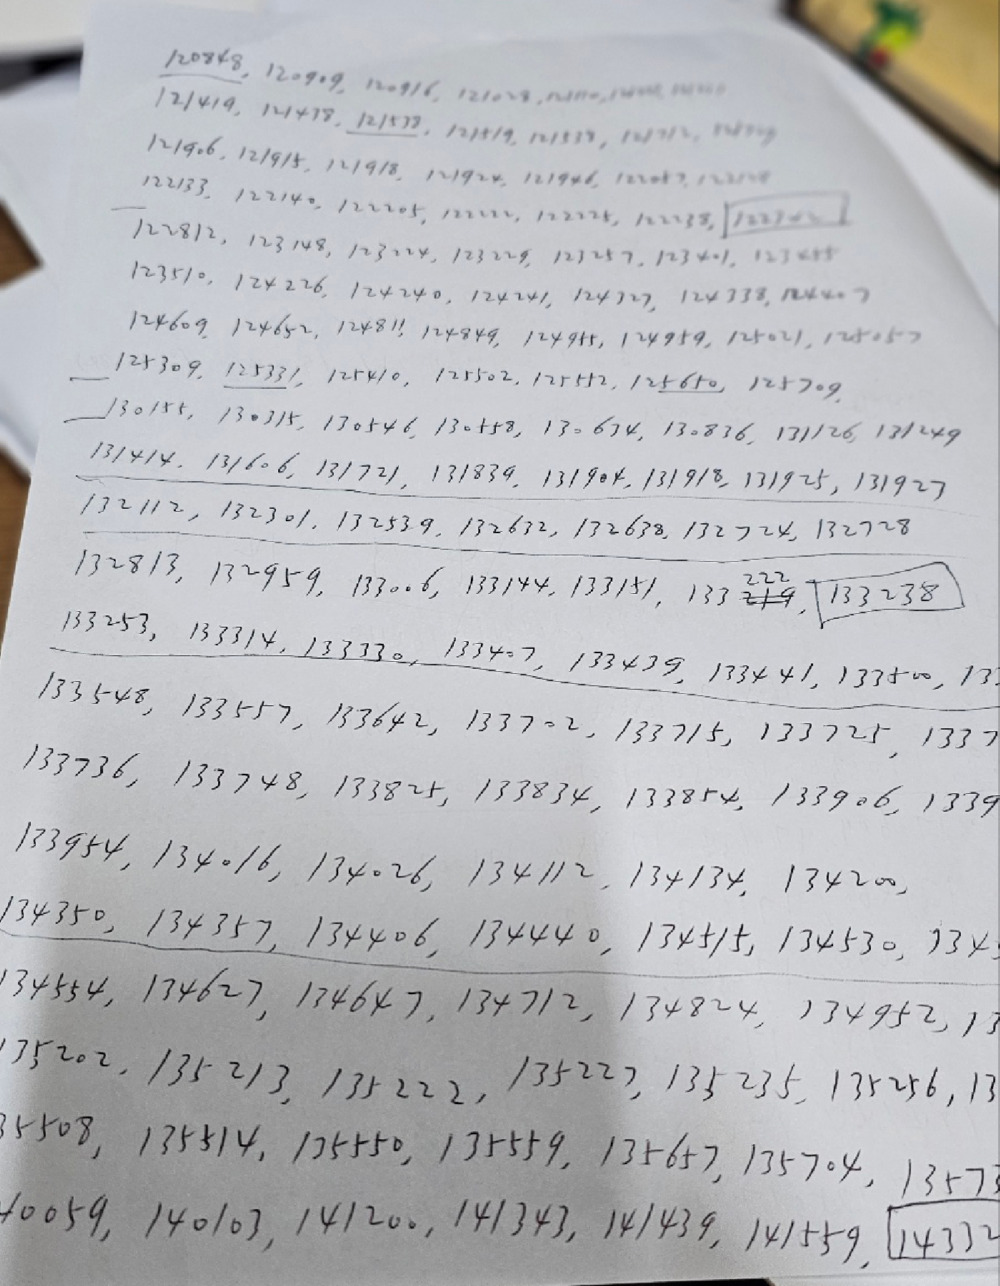 120848, 120909, 120916, 121028,
121419, 121438, 121533, 121519, 121538, 121712,
121906, 121915, 121918, 121924, 121946, 122057,
122133, 122140, 122205, 122222, 122225, 122238, 122342
122812, 123148, 123224, 123229, 123257, 123401, 123455
123510, 124226, 124240, 124241, 124327, 124338, 124407
124609, 124652, 124811, 124849, 124955, 124959, 125021, 125057
125309, 125331, 125410, 125502, 125552, 125650, 125709,
130155, 130315, 130546, 130558, 130634, 130836, 131126, 131249
131414, 131606, 131721, 131839, 131904, 131918, 131925, 131927
132112, 132301, 132539, 132632, 132638, 132724, 132728
132813, 132959, 133006, 133144, 133151, 133222, 133238
133253, 133314, 133330, 133407, 133439, 133441, 133500, 13
133548, 133557, 133642, 133702, 133715, 133725, 1337
133736, 133748, 133825, 133834, 133854, 133906, 1339
133954, 134016, 134026, 134112, 134134, 134200,
134350, 134357, 134406, 134440, 134515, 134530, 134
134554, 134627, 134647, 134712, 134824, 134952, 13
135202, 135213, 135222, 135227, 135235, 135256, 13
35508, 135514, 135550, 135559, 135657, 135704, 13573
40059, 140103, 141200, 141343, 141439, 141559, 14332